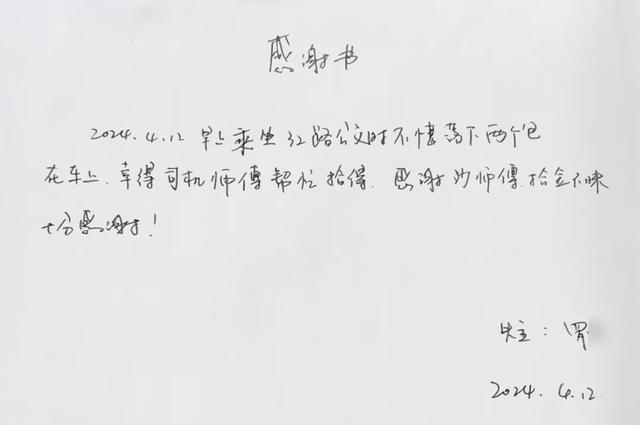 感谢书
2024.4.12 早上乘坐32路公交时不慎落下两个包
在车上,幸得司机师傅帮忙拾得.感谢沙师傅,拾金不昧
十分感谢!
失主:罗
2024.4.12